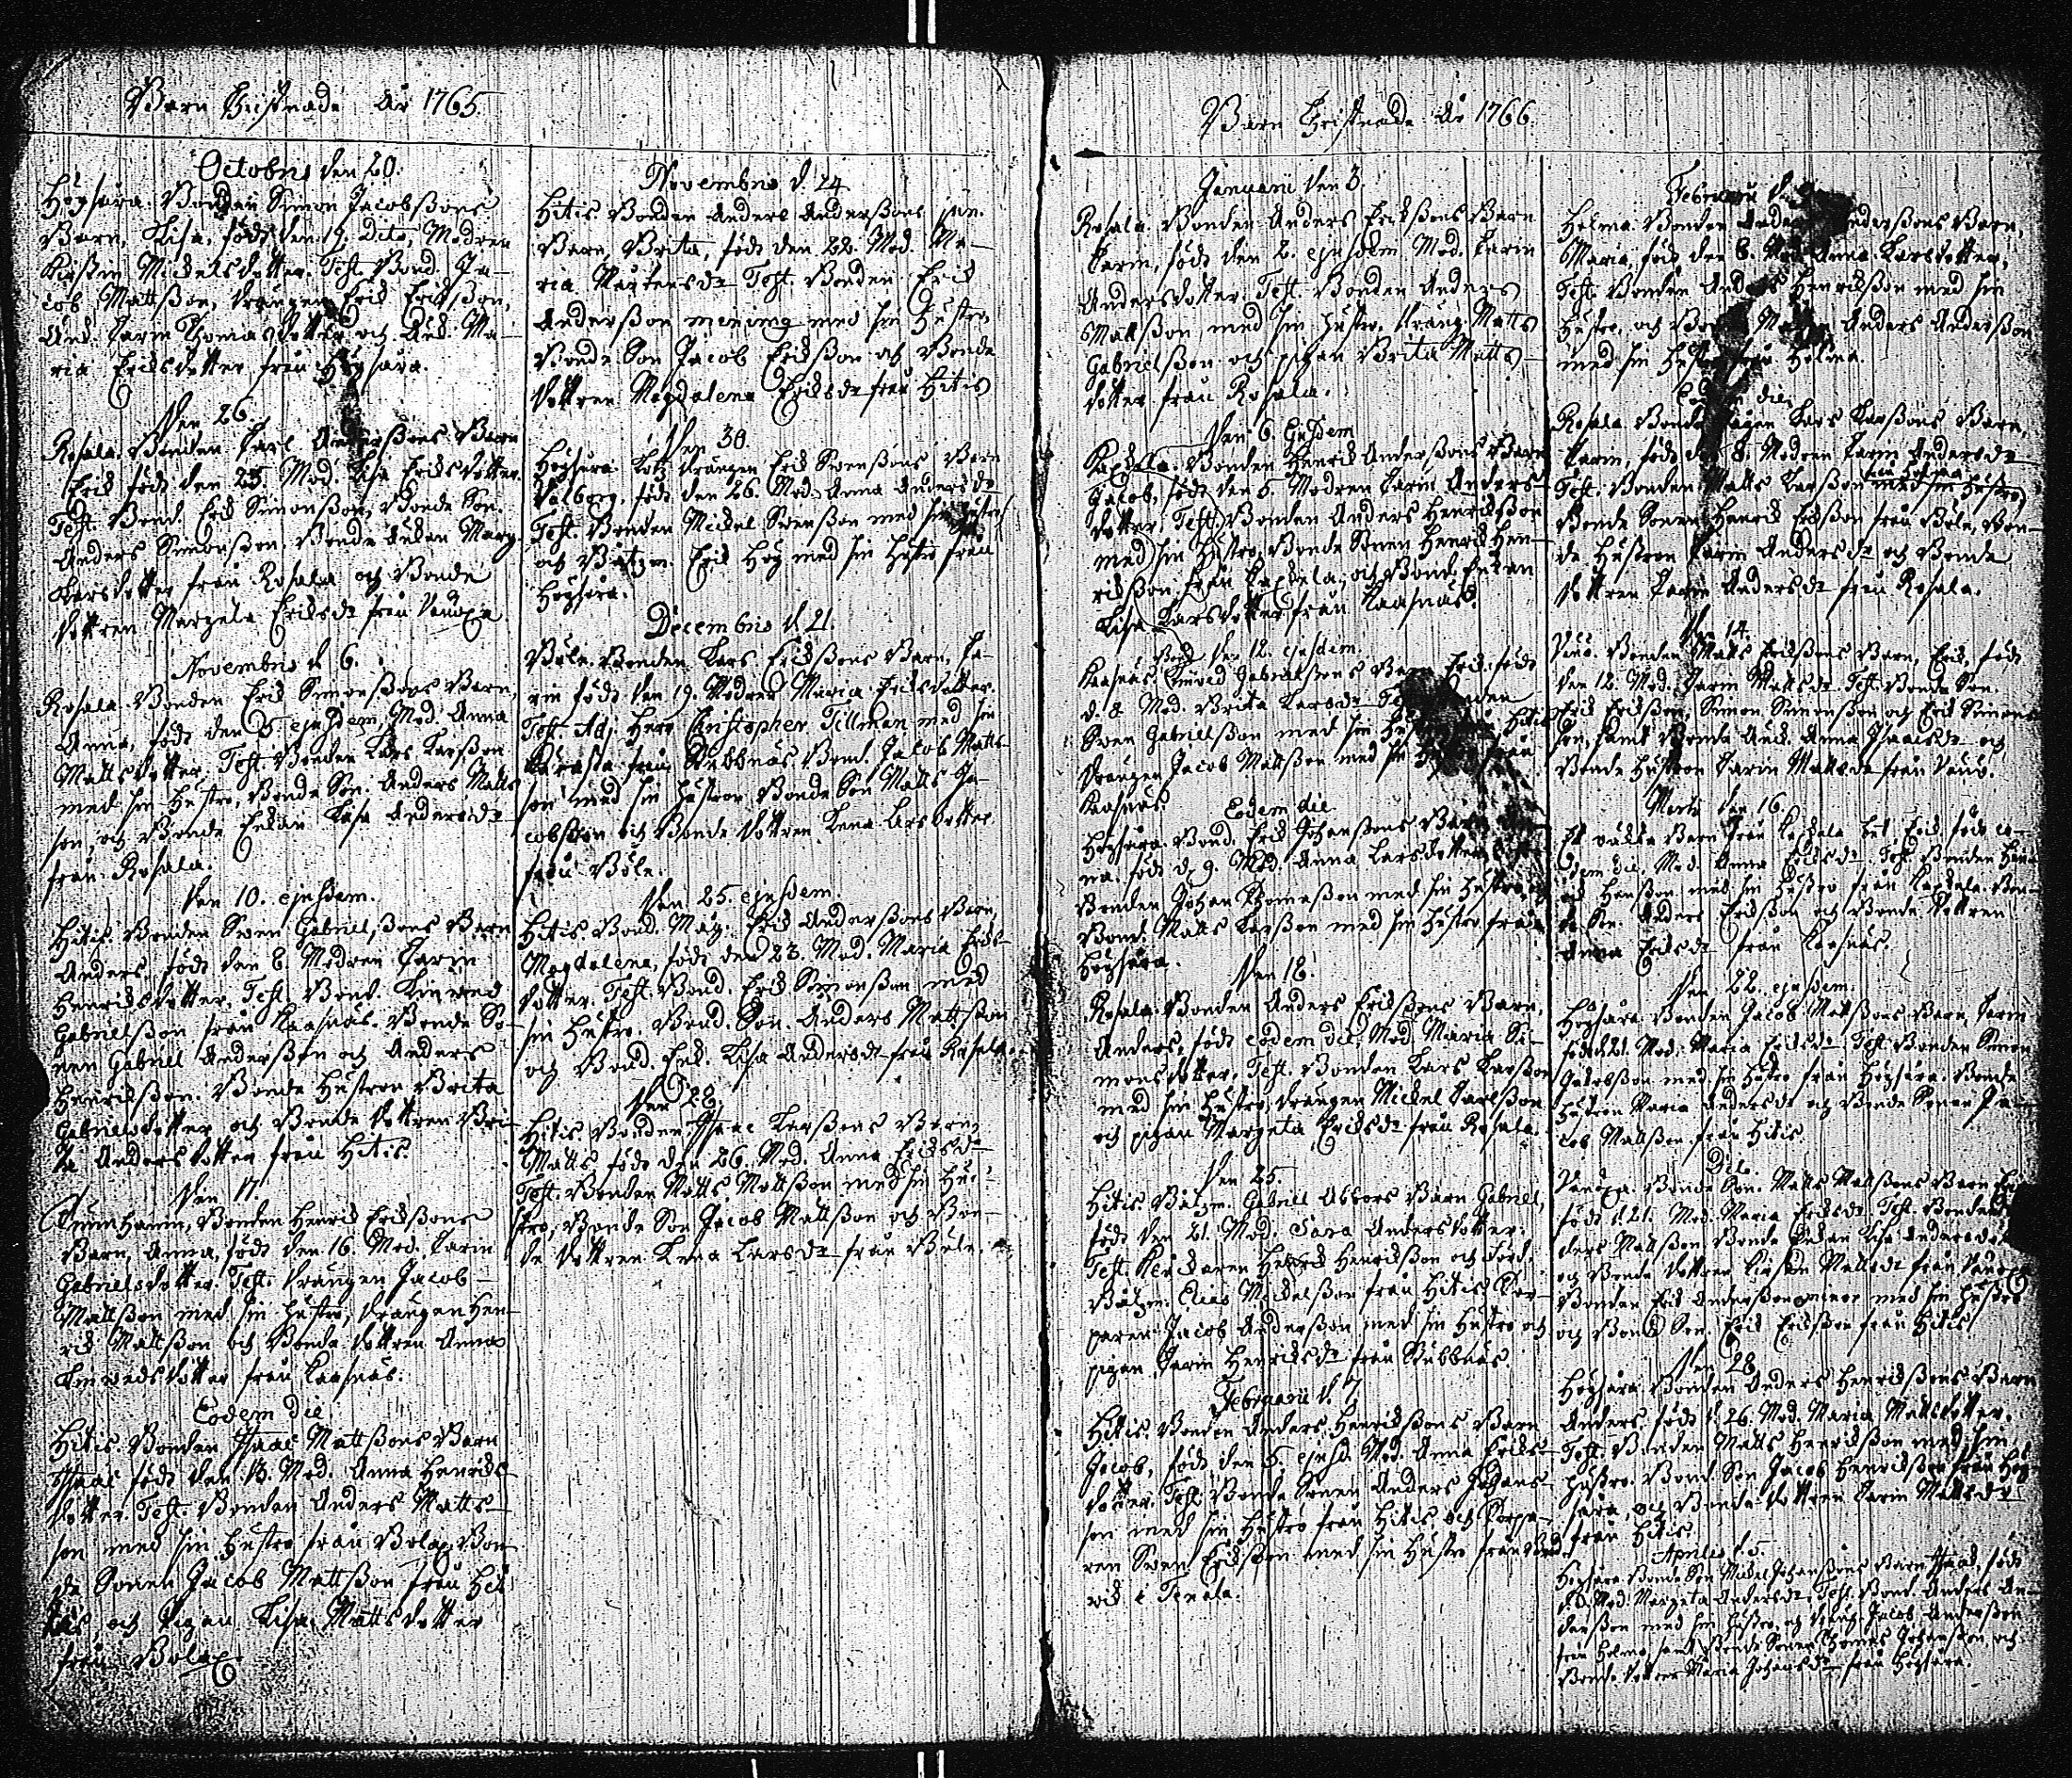 Barn Christnade År 1765.
Octobris den 20.
Högsåra. Bonden Simon Jacobßons
Barn, Lisa, född den 19 Dito, Modren
Kirstin Mickelsdotter. Test. Bond. Ja-
cob Mattßon, Drängen Erik Erikßon,
Enk. Carin Thomasdotter och Enk. Ma-
ria Eriksdotter från Högsåra.
Den 26.
Rosala. Bonden Carl Anderßons Barn
Erik född den 25. Mod. Lisa Eriksdotter.
Test. Bond. Erik Simonßon, Bonde Son.
Anders Simonßon. Bonde Enkan Marg.
Larsdotter från Rosala och Bonde
dottren Margeta Eriksdr från Vänoxa
Novembris d 6.
Rosala. Bonden Erik Simonßons Barn,
Anna, född den 5 ejusdem, Mod. Anna
Mattsdotter, Test. Bonden Lars Larßon
med sin Hustro, Bonde Son. Anders Matts
son, och Bonde Enkan Lisa Andersdr
från Rosala.
Den 10. ejusdem.
Hitis. Bonden Swen Gabrielßons Barn
Anders, född den 8. Modren Carin
Henriksdotter, Test. Bond. Linved
Gabrielßon från Kasnäs. Bonde So-
nen Gabriel Anderßon och Anders
Henrikßon. Bonde Hustron Brita
Gabrielsdotter och Bonde dottren Bri-
ta Andersdotter från Hitis.
Den 17.
Bonden Henrik Erikßons
Barn, Anna, född den 16. Mod. Carin
Gabrielsdotter. Test. Drängen Jacob
Mattßon med sin Hustro, Drängen Hen-
rik Mattßon och Bonde dottren Anna
Linvedsdotter från Kasnäs.
Eodem die
Hitis. Bonden Isaac Mattßons Barn
Isaac född den 13. Mod. Anna Henriks-
dotter. Test. Bonden Anders Matts-
son med sin Hustro från Bolax, Bon-
de Sonen Jacob Mattßon från Hi-
tis och Pigan Lisa Mattsdotter
från Bolax
Novembris d. 24
Hitis. Bonden Anders Anderßons jun.
Barn, Brita, född den 22. Mod. Ma-
ria Mårtensdr Test. Bonden Erik
Anderßon med sin Hustro,
Bonde Son Jacob Erikßon och Bonde
dottren Magdalena Eriksdr från Hitis
Den 30.
Högsåra. Drängen Erik Swenßons Barn
Valborg. född den 26. Mod. Anna Andersdr
Test. Bonden Mickel Swenßon med sin Hustro
och Båtzm. Erik Hög med sin Hustro från
Högsåra.
Decembris d 21.
Böle. Bonden Lars Erikßons Barn, Ca-
rin född den 19. Modren Maria Eriksdotter.
Test. Adj. Herr Christopher Tillman med sin
Kärasta från Stubbnäs Bond. Jacob Matts-
son med sin Hustro Bonde Son Matts Ja-
cobßon och Bonde dottren Lena Larsdotter
från Böle.
Den 25. ejusdem.
Hitis. Bond. Måg. Erik Anderßons Barn,
Magdalena, född den 23. Mod. Maria Eriks-
dotter. Test. Bond. Erik Simonßon med
sin Hustro. Bond. Son. Anders Mattßon
och Bond. Enk. Lisa Andersdr från Rosala.
Den 28.
Hitis. Bonden Isaac Larßons Barn,
Matts, född den 26. Mod. Anna Eriksdr
Test. Bonden Matts Mattßon med sin Hus-
tro, Bonde Son Jacob Mattßon och Bon-
de dottren Lena Larsdr från Böle.
Barn Christnade År 1766.
Januarii den 3.
Rosala. Bonden Anders Erikßons Barn
Carin, född den 2. ejusdem Mod. Carin
Andersdotter. Test. Bonden Anders
Mattßon, med sin Hustro, Dräng. Matts
Gabrielßon och pigan Brita Matts-
dotter från Rosala.
Den 6. Ejusdem
Bonden Henrik Anderßons Barn
Jacob, född den 5. Modren Carin Anders-
dotter, Test. Bonden Anders Henrikßon
med sin Hustro, Bonde Sonen Henrik Hen-
rikßon från och Bond. Enkan
Lisa Larsdotter från Kasnäs.
Den 12. ejusdem.
Kasnäs. Bond. Linved Gabrielßons Barn Erik, född
d. 8 Mod. Brita Larsdr Test. Bonden
Swen Gabrielßon med sin Hitis
Drängen Jacob Mattßon med sin från
Kasnäs.
Eodem die
Högsåra. Bond. Erik Johanßons Barn
na. född d. 9. Mod. Anna Larsdotter
Bonden Johan Thomaßon med sin Hustro
Bond. Matts Larßon med sin Hustro från
Högsåra.
Den 18.
Rosala. Bonden Anders Erikßons Barn,
Anders, född eodem die, Mod. Maria Si-
monsdotter, Test. Bonden Lars Larßon
med sin Hustro, Drängen Mickel Carlßon
och pigan Margeta Eriksdr från Rosala.
Den 25.
Hitis. Båtzm. Gabriel Abbors Barn Gabriel,
född den 21. Mod. Sara Andersdotter.
Test. Henrik Henrikßon och
Båtzm. Elias Mickelßon från Hitis, Tor-
paren Jacob Anderßon med sin Hustro och
pigan Carin Henriksdr från Stubbnäs.
Februarii d. 7.
Hitis. Bonden Anders Henrikßons Barn
Jacob, född den 5. ejusd. Mod. Anna Eriks-
dotter. Test. Bonde Sonen Anders Johans-
son med sin Hustro från Hitis och Torpa-
ren Swen Erikßon med sin Hustro från
vik i Tenala.
Februarii d.
Holma. Bonden Anders Anderßons Barn,
Maria, född den 8. Mod. Anna Larsdotter,
Test. Bonden Anders Henrikßon med sin
Hustro, och Anders Anderßon
med sin Hustro från Holma.
Eodem die
Rosala. Bonde Mågen Lars Larßons Barn,
Carin, född d. 8. Modren Carin Andersdr
Test. Bonden Matts Larßon med sin Hustro
från Holma
Bonde Sonen Henrik Erikßon från Böle, Bon-
de Hustron Carin Andersdr och Bonde
dottren Carin Andersdr från Rosala.
Den 14.
Vänö. Bonden Matts Erikßons Barn, Erik, född
den 12. Mod. Carin Mattsdr. Test. Bonde Son.
Erik Erikßon, Simon Simonßon och Erik Simons-
son, samt Bonde Enk. Anna Isaacsdr och
Bonde Hustron Carin Mattsdr från Vänö.
Martii den 16.
Ett oäkta Barn från bet. Erik född eo-
dem die, Mod. Anna Eriksdr. Test. Bonden Hen-
rik med sin Hustro från Bon-
de Son. Anders Erikßon och Bonde dottren
Anna Eriksdr från Kasnäs.
Den 22. ejusdem.
Högsåra Bonden Jacob Mattßons Barn, Carin
född d 21. Mod. Maria Eriksdr. Test. Bonden Simon
Jacobßon med sin Hustro från Högsåra. Bonde
Hustron Maria Andersdr och Bonde Sonen Ja-
cob Mattßon från Hitis.
Dito.
Vänoxa. Bonde Son. Matts Mattßons Barn
född d. 21. Mod. Maria Eriksdr. Test. Bonden
ders Mattßon. Bonde Enkan Lisa Andersdr
och Bonde dottren Kirstin Mattsdr från Vänoxa
Bonden Erik Anderßon med sin Hustro
och Bonde Son. Erik Erikßon från Hitis.
Den 28.
Högsåra. Bonden Anders Henrikßons Barn
Anders, född d. 26. Mod. Maria Mattsdotter.
Test. Bonden Matts Henrikßon med sin
Hustro. Bond. Son Jacob Henrikßon från Hög-
såra, och Bonde dottren Carin Mattsdr
från Hitis.
Aprilis d. 5.
Högsåra. Bonde Son Mickel Johanßons Barn född
Mod. Margeta Andersdr. Test. Bond. Anders An-
derßon med sin Hustro, och Dräng. Jacob Anderßon
från Holma, samt Bonde Sonen Thomas Johanßon och
Bond. dottren Maria Johansdr från Högsåra.